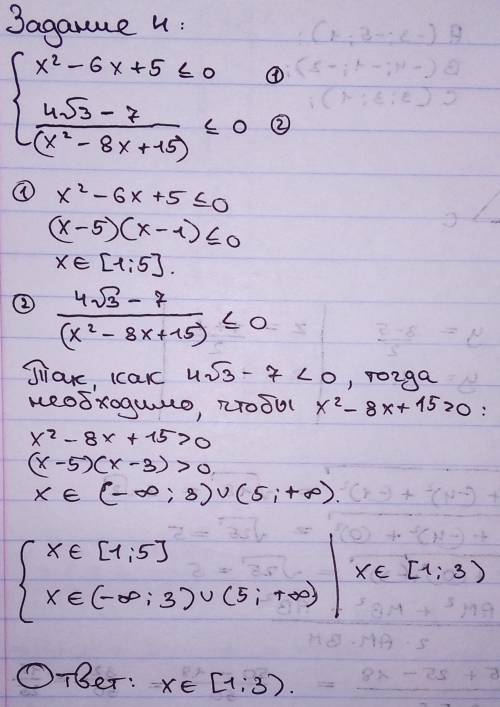 Задание 4:
x² - 6x + 5 ≤ 0 ①
4√3 - 7 / (x² - 8x + 15) ≤ 0 ②
① x² - 6x + 5 ≤ 0
(x-5)(x-1) ≤ 0
x ∈ [1;5].
② 4√3 - 7 / (x² - 8x + 15) ≤ 0
Так, как 4√3 - 7 < 0, тогда
необходимо, чтобы x² - 8x + 15 > 0:
x² - 8x + 15 > 0
(x-5)(x-3) > 0
x ∈ (-∞; 3) ∪ (5; +∞).
x ∈ [1;5]
x ∈ (-∞; 3) ∪ (5; +∞) | x ∈ [1; 3)
Ответ: x ∈ [1;3).